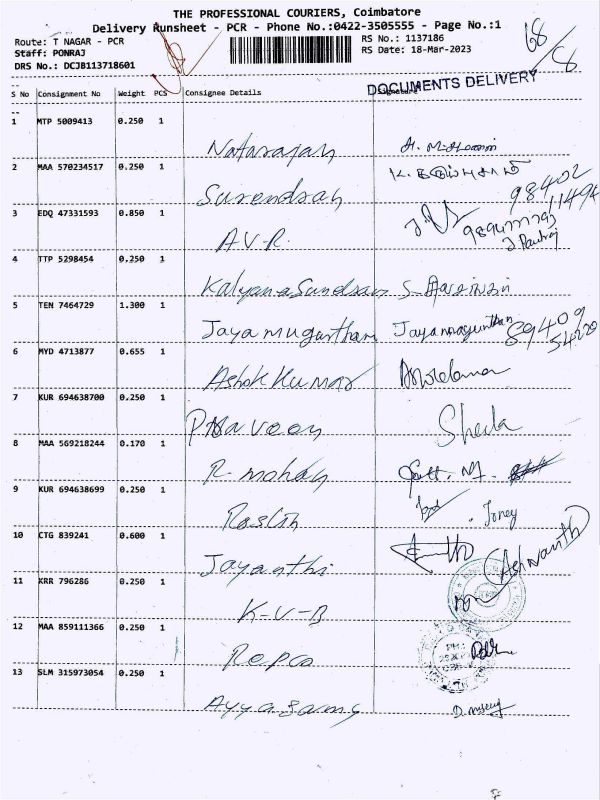 THE PROFESSIONAL COURIERS, Coimbatore
Delivery Runsheet - PCR - Phone No.:0422-3505555 - Page No.:1
Route: T NAGAR - PCR
RS No.: 1137186
Staff: PONRAJ
RS Date: 18-Mar-2023
DRS No.: DCJB113718601
68/8
DOCUMENTS DELIVERY
S No Consignment No Weight PCS Consignee Details Signature
1 MTP 5009413 0.250 1
Natarajan
2 MAA 570234517 0.250 1
Surendran
98402
11494
3 EDQ 47331593 0.850 1
A.V.R.
4 TTP 5298454 0.250 1
Kalyana Sundran
5 TEN 7464729 1.300 1
Jayamugunthan Jayamugunthan
89409
54220
6 MYD 4713877 0.655 1
Ashok Kumar
7 KUR 694638700 0.250 1
Praveen Sheila
8 MAA 569218244 0.170 1
R. mohan
9 KUR 694638699 0.250 1
Roslin Toney
10 CTG 839241 0.600 1
Jayanthi Ashwanth
11 KRR 796286 0.250 1
K-V-B
12 MAA 859111366 0.250 1
Repco
13 SLM 315973054 0.250 1
Ayyasamy